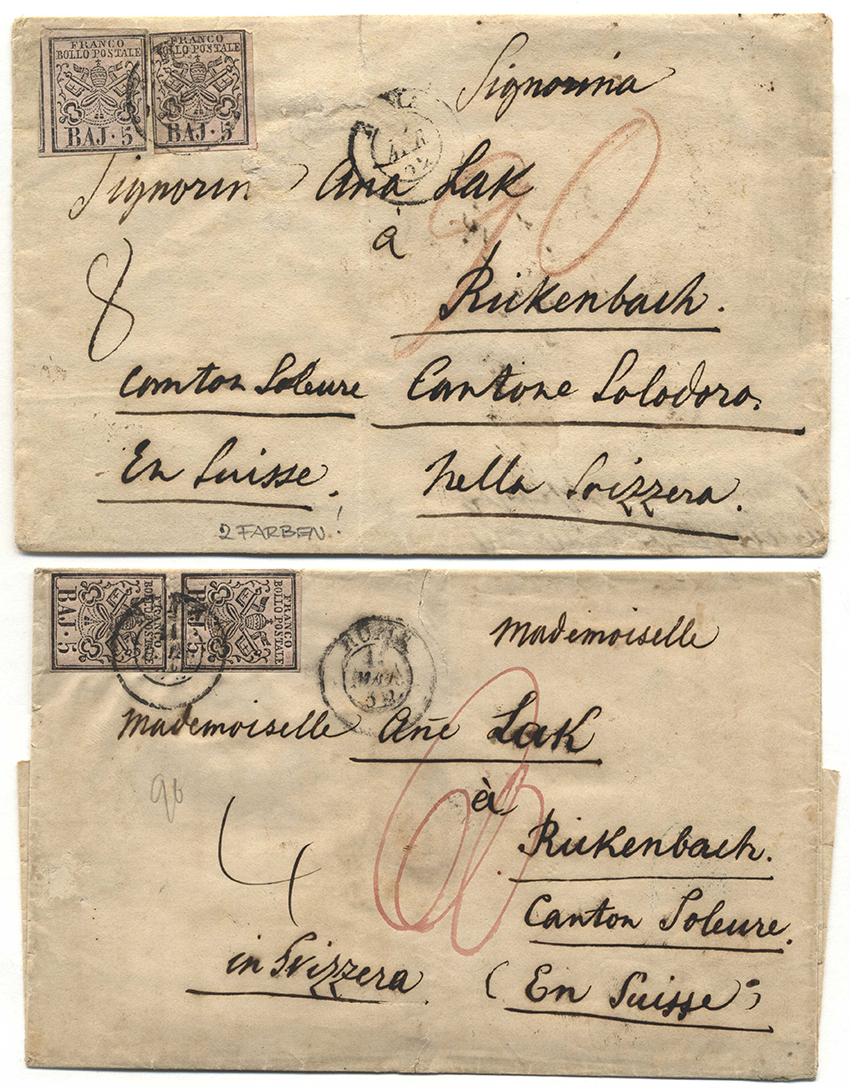 FRANCO
BOLLO POSTALE
BAJ·5
FRANCO
BOLLO POSTALE
BAJ·5
APR
Signorina
Signorin Ana Lak
à
90
8
Rickenbach.
Canton Soleure Cantone Solodoro.
En Suisse. nella Svizzera.
2 FARBEN!
FRANCO
BOLLO POSTALE
BAJ·5
FRANCO
BOLLO POSTALE
BAJ·5
ROMA
52
Mademoiselle
Mademoiselle Añe Lak
à
90
4
60
Rickenbach.
Canton Soleure.
in Svizzera (En Suisse)